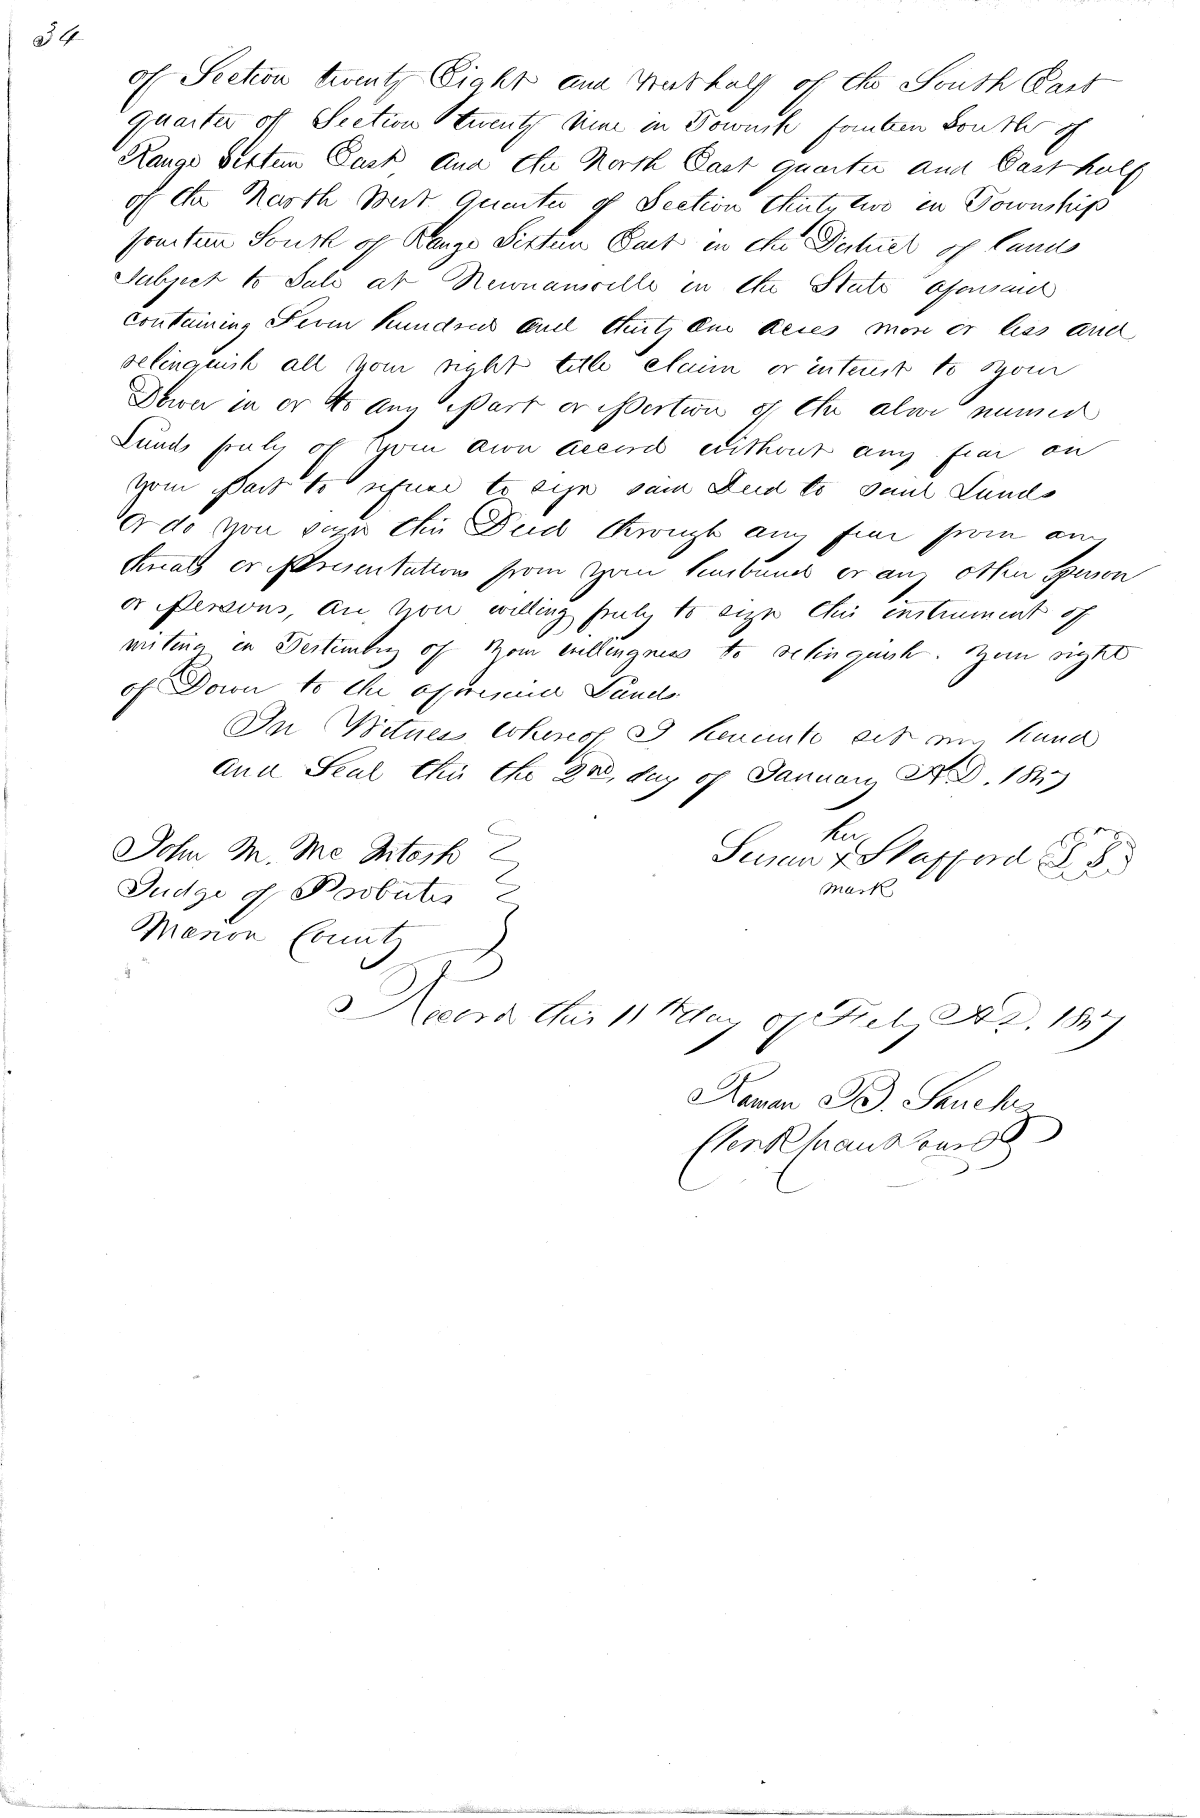 34
of Section twenty Eight and West half of the South East
quarter of Section twenty Nine in Townsh fourteen South of
Range Sixteen East and the North East quarter and East half
of the North West Quarter of Section thirty two in Township
fourteen South of Range Sixteen East in the District of lands
Subject to Sale at Newnansville in the State aforesaid
containing Seven hundred and thirty one acres more or less and
relinquish all your right title claim or interest to your
Dower in or to any Part or Portion of the above named
Lands freely of your own accord without any fear on
your Part to refuse to sign said Deed to said Lands
or do you sign this Deed through any fear from any
threats or Presentations from your husband or any other Person
or Persons, are you willing freely to sign this instrument of
writing in Testimony of your willingness to relinquish. your right
of Dower to the aforesaid Lands
In Witness whereof I hereunto set my hand
and Seal this the 2nd, day of January A.D. 1857
her
John M. Mc Intosh Susan X Stafford L S
Judge of Probates mark
Marion County
Record this 11th day of Feby A.D. 1857
B. Sanchez
Clerk